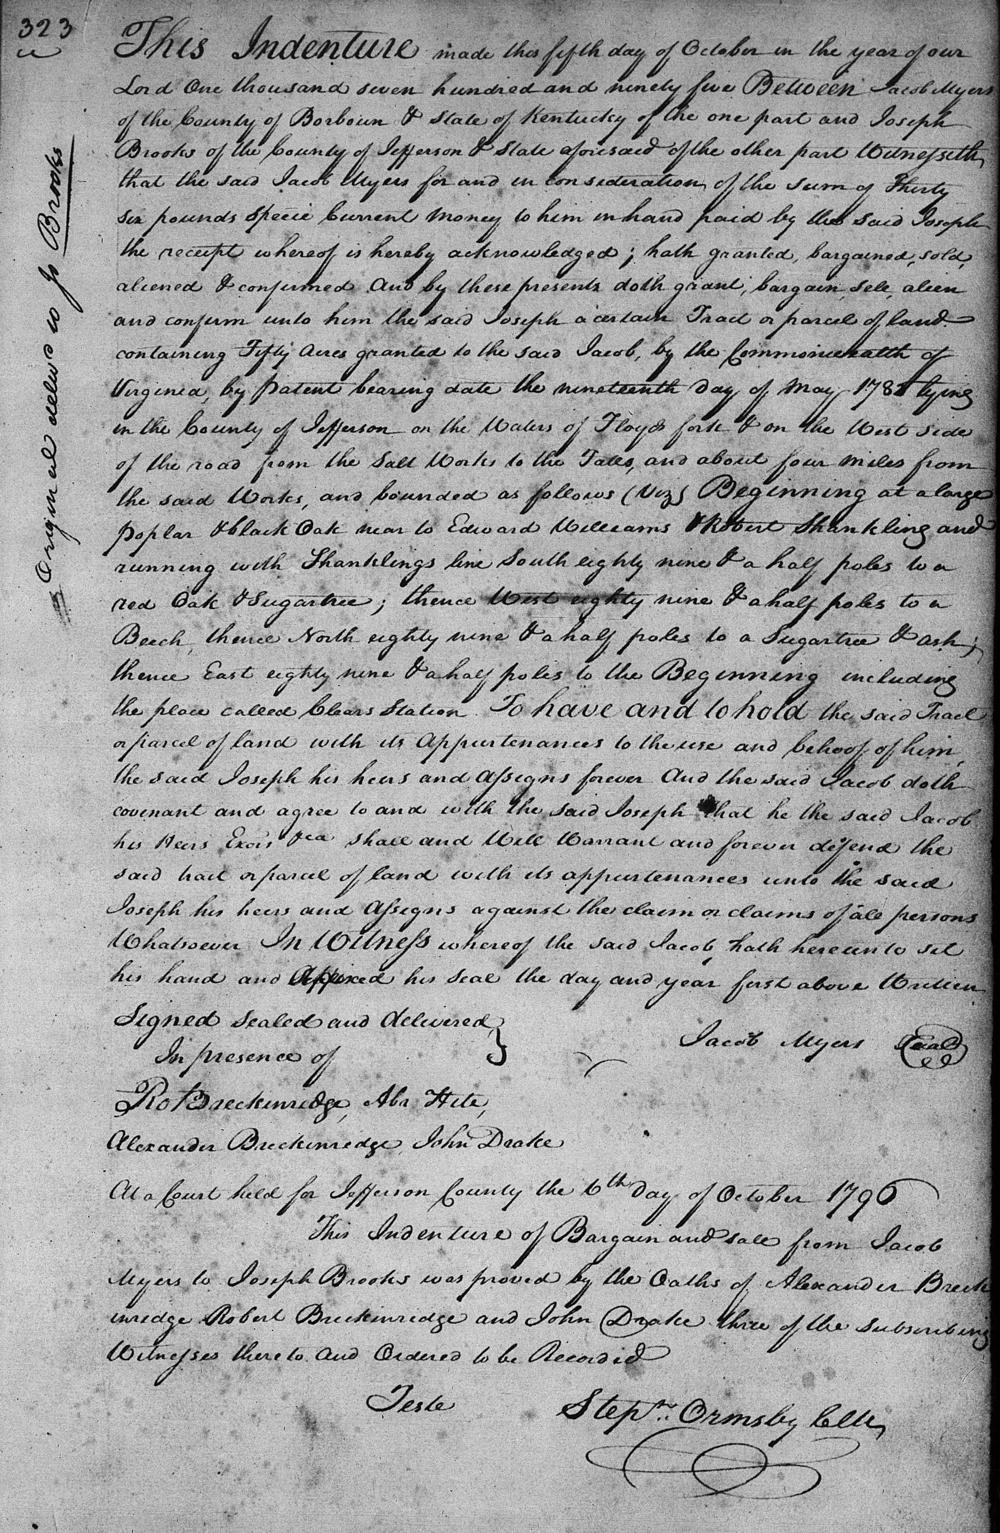 323
Original deliv'd to Js Brooks
This Indenture made this fifth day of October in the year of our
Lord One thousand seven hundred and ninety five Between Jacob Myers
of the County of Borboun & State of Kentucky of the one part and Joseph
Brooks of the County of Jefferson & State aforesaid of the other part Witnesseth,
that the said Jacob Myers for and in consideration, of the sum of Thirty
six pounds Specie Current money to him in hand paid by the said Joseph
the receipt whereof is hereby acknowledged; hath granted, bargained, sold,
aliened & confirmed And by these presents doth grant, bargain, sell, alien
and confirm unto him the said Joseph a certain Tract or parcel of land
containing Fifty Acres granted to the said Jacob, by the Commonwealth of
Virginia, by Patent bearing date the nineteenth day of May 178 lying
in the County of Jefferson on the Waters of Floyds fork & on the West side
of the road from the Salt Works to the Falls, and about four miles from
the said Works, and bounded as follows (Viz) Beginning at a large
Poplar & black Oak near to Edward Williams & Robert Shankling and
running with Shanklings line South eighty nine & a half poles to a
red Oak & Sugartree; thence West eighty nine & a half poles to a
Beech, thence North eighty nine & a half poles to a Sugartree & ash;
thence East eighty nine & a half poles to the Beginning including
the place called Clears Station To have and to hold the said Tract
or parcel of land with its Appurtenances to the use and behoof of him,
the said Joseph his heirs and Assigns forever And the said Jacob doth
covenant and agree to and with the said Joseph that he the said Jacob
his Heirs Exors &ca shall and Will Warrant and forever defend the
said tract or parcel of land with its appurtenances unto the said
Joseph his heirs and Assigns against the claim or claims of all persons
Whatsoever In Witness whereof the said Jacob hath hereunto set
his hand and Affixed his Seal the day and year first above Written
Signed Sealed and delivered }
In presence of
Jacob Myers (Seal)
Ro Breckinridge, Abr Hite,
Alexander Breckinridge, John Drake
At a Court held for Jefferson County the 6th day of October 1796
This Indenture of Bargain and sale from Jacob
Myers to Joseph Brooks was proved by the Oaths of Alexander Breck
inridge Robert Breckinridge and John Drake three of the subscribing
Witnesses thereto And Ordered to be Recorded
Teste
Stepn. Ormsby Clk